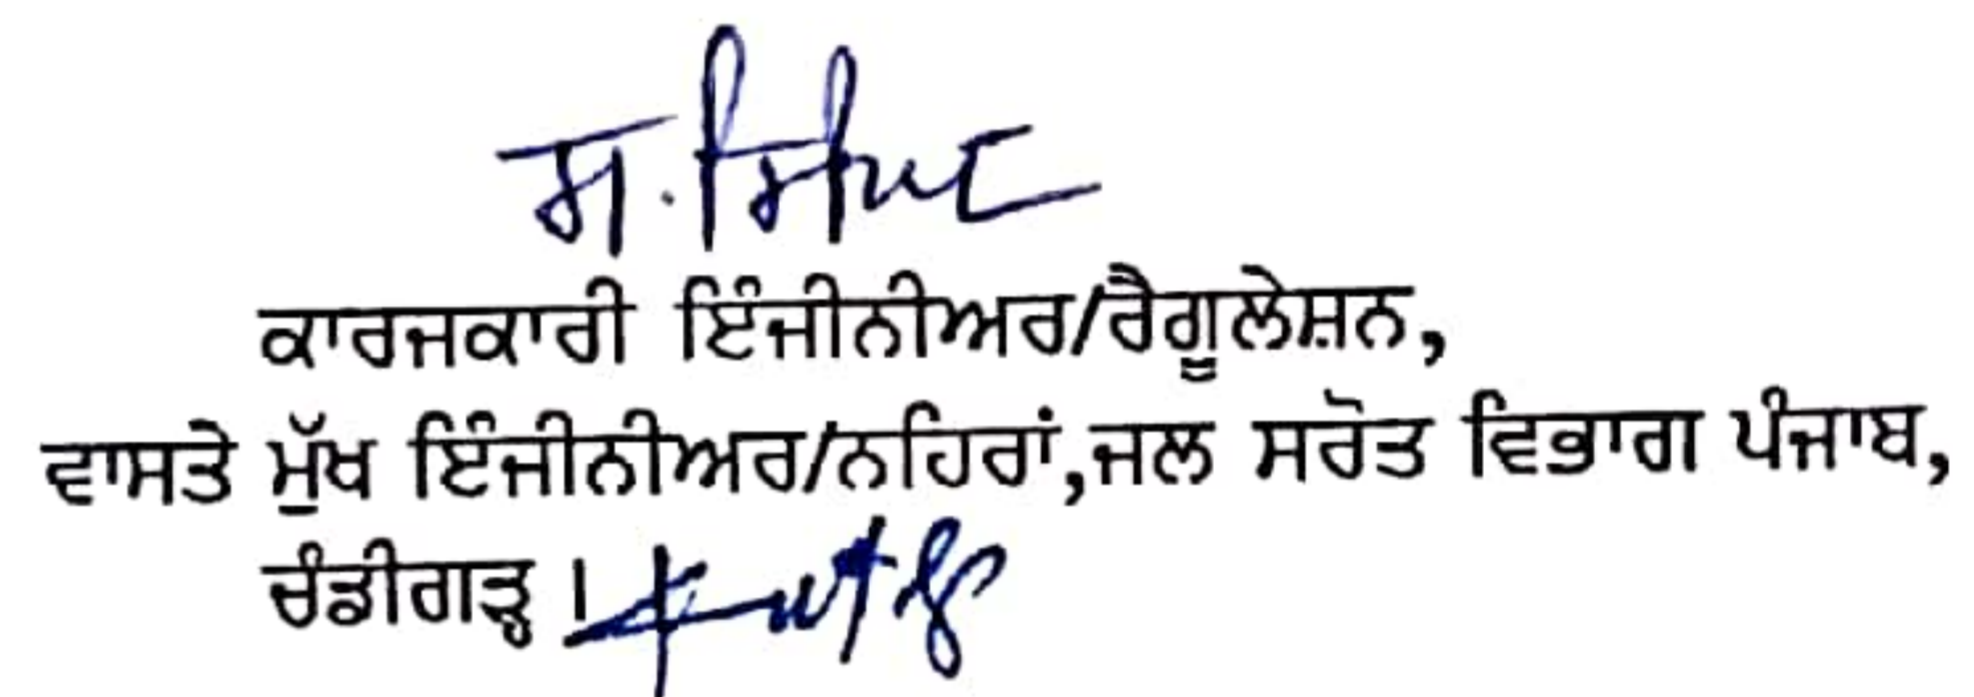 ਕਾਰਜਕਾਰੀ ਇੰਜੀਨੀਅਰ/ਰੈਗੂਲੇਸ਼ਨ,
ਵਾਸਤੇ ਮੁੱਖ ਇੰਜੀਨੀਅਰ/ਨਹਿਰਾਂ,ਜਲ ਸਰੋਤ ਵਿਭਾਗ ਪੰਜਾਬ,
ਚੰਡੀਗੜ੍ਹ ।